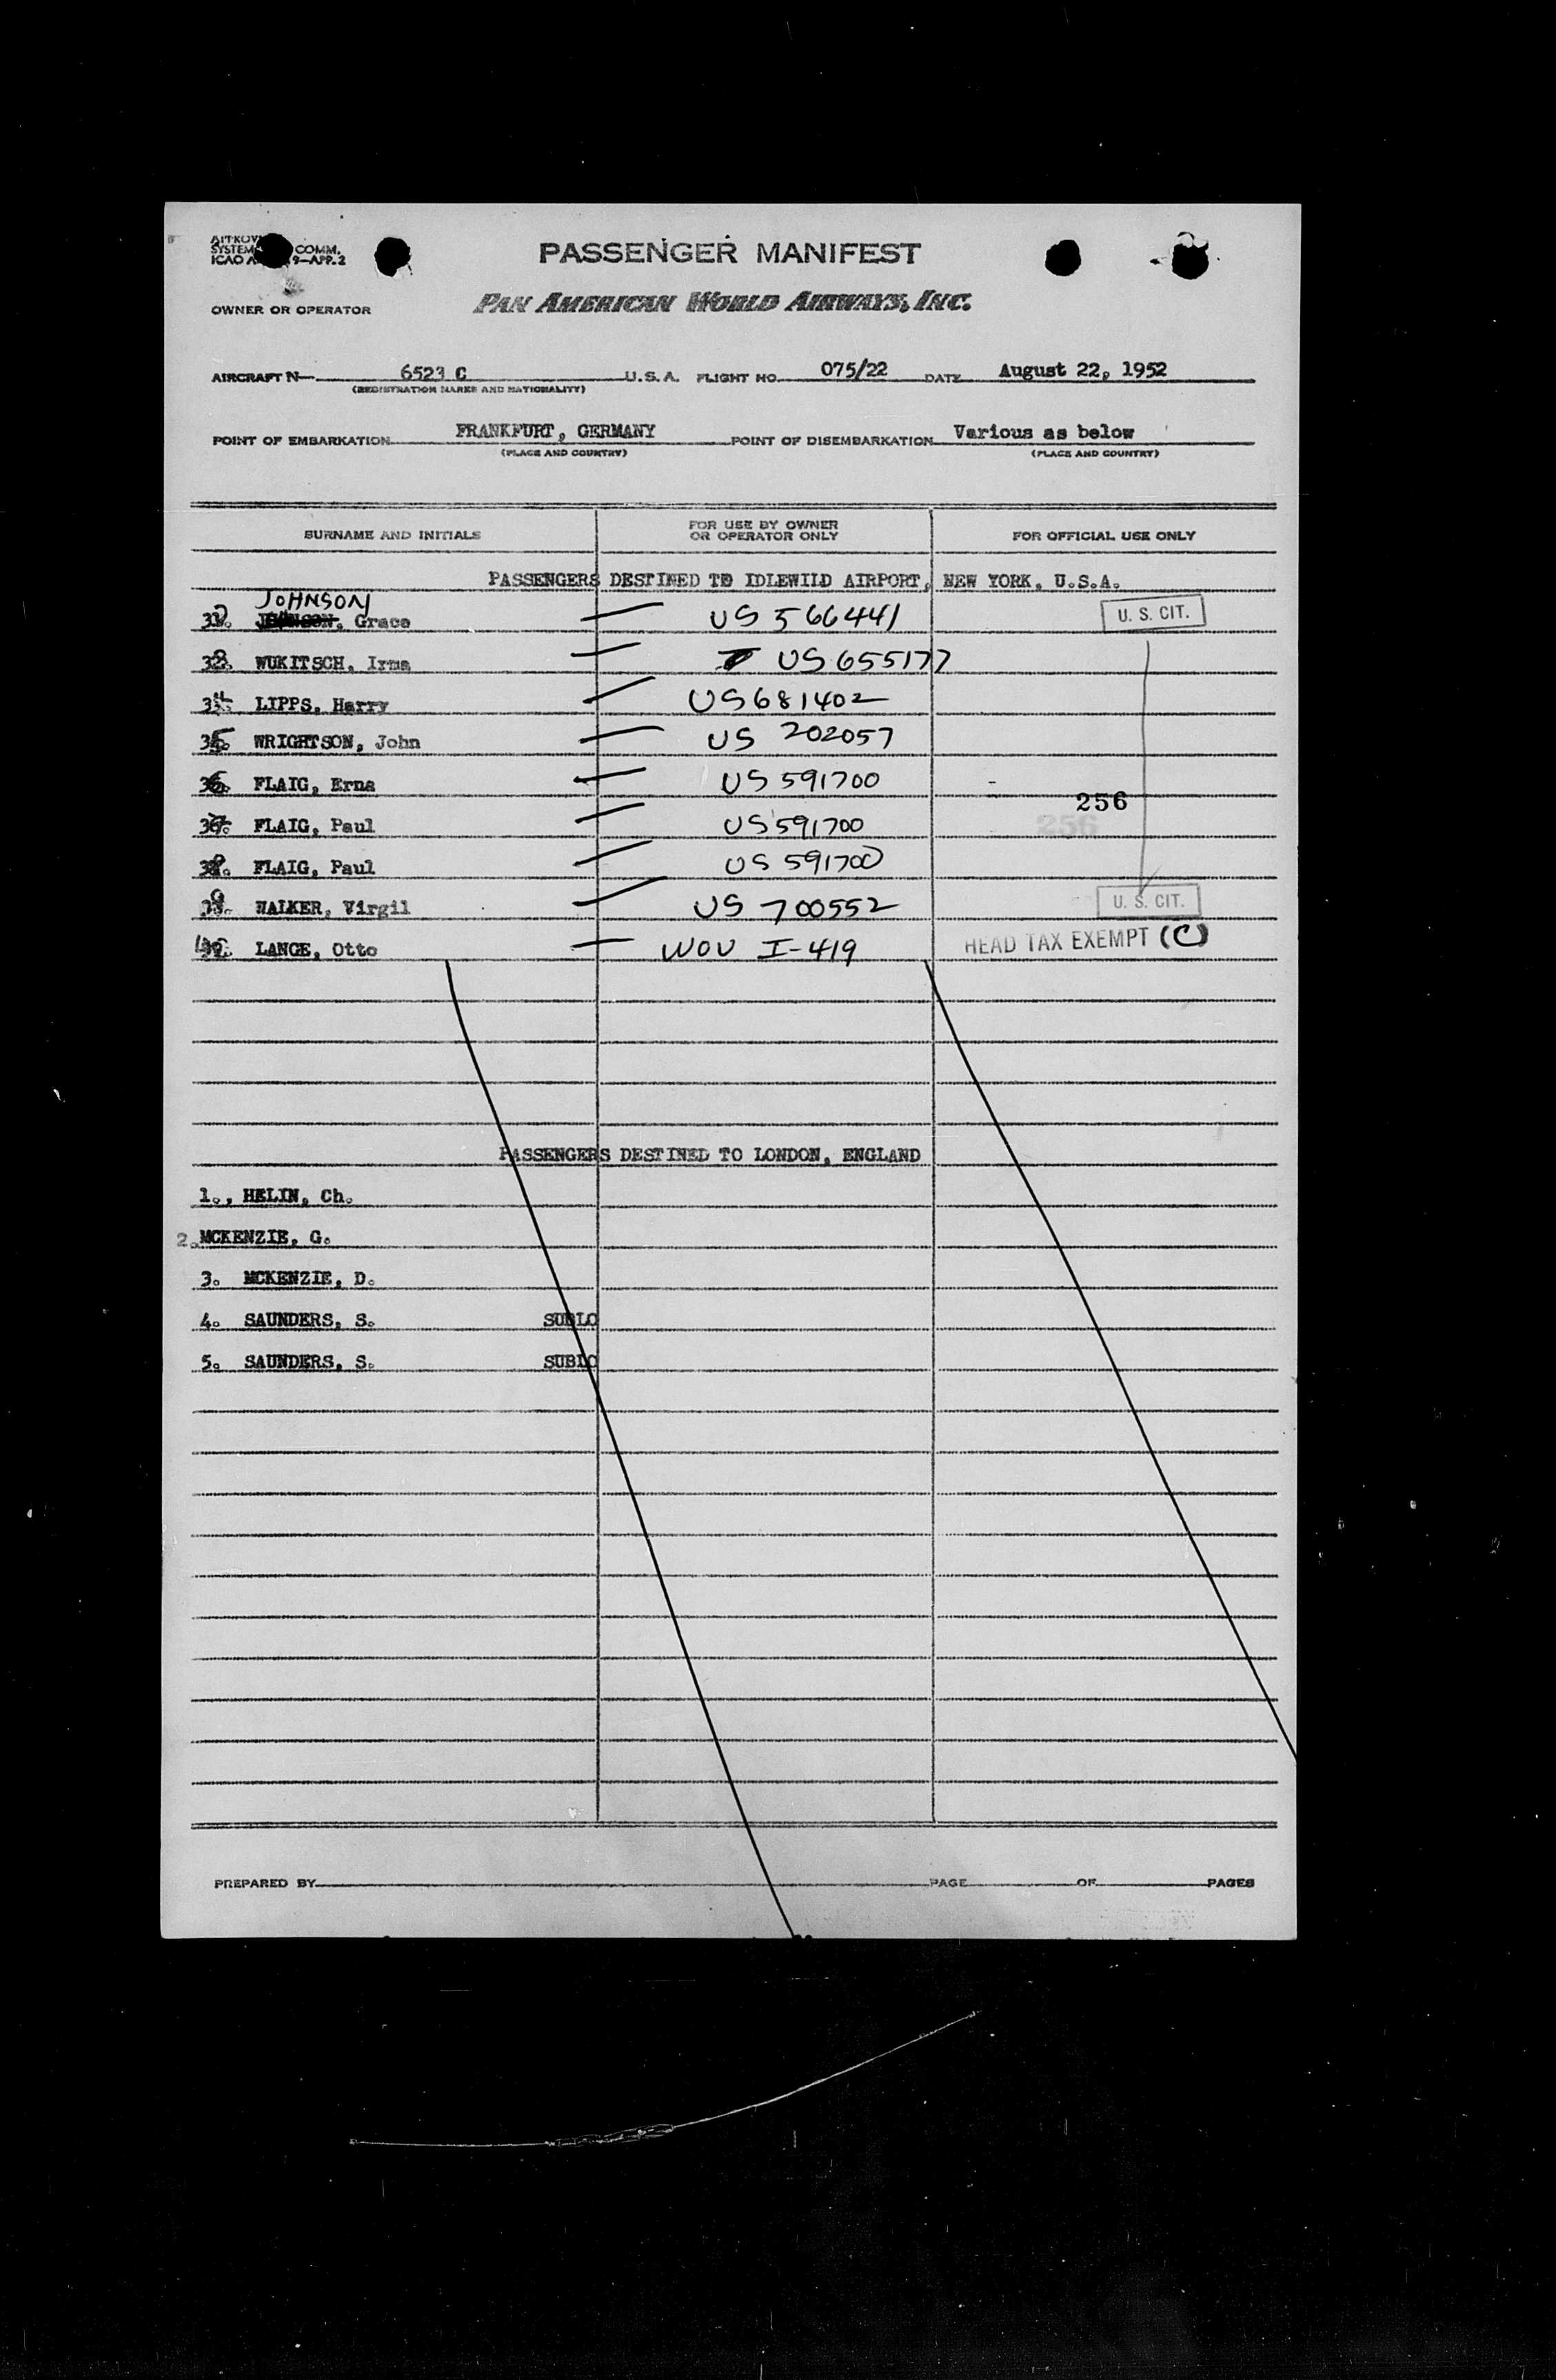 SYSTEM COMM.
ICAO A 9—APP. 2
PASSENGER MANIFEST
OWNER OR OPERATOR PAN AMERICAN WORLD AIRWAYS, INC.
AIRCRAFT N— 6523 C U.S.A. FLIGHT NO. 075/22 DATE August 22, 1952
(REGISTRATION MARKS AND NATIONALITY)
POINT OF EMBARKATION FRANKFURT, GERMANY POINT OF DISEMBARKATION Various as below
(PLACE AND COUNTRY) (PLACE AND COUNTRY)
SURNAME AND INITIALS FOR USE BY OWNER OR OPERATOR ONLY FOR OFFICIAL USE ONLY
PASSENGERS DESTINED TO IDLEWILD AIRPORT, NEW YORK, U.S.A.
JOHNSON
32. Grace — US 566441 U. S. CIT.
33. WUKITSCH, Irma — US 655177
34. LIPPS, Harry — US 681402
35. WRIGHTSON, John — US 202057
36. FLAIG, Erna — US 591700
256
37. FLAIG, Paul — US 591700 256
38. FLAIG, Paul — US 591700
39. WALKER, Virgil — US 700552 U. S. CIT.
40. LANGE, Otto — WOV I-419 HEAD TAX EXEMPT (C)
PASSENGERS DESTINED TO LONDON, ENGLAND
1., HELIN, Ch.
2. MCKENZIE, G.
3. MCKENZIE, D.
4. SAUNDERS, S. SUBLO
5. SAUNDERS, S. SUBLO
PREPARED BY PAGE OF PAGES